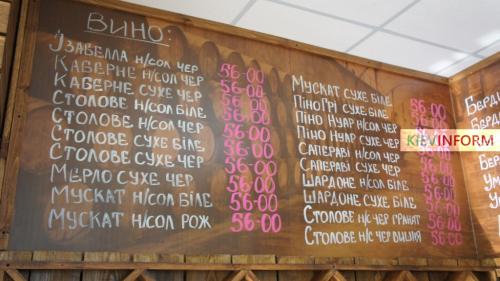 ВИНО:
ІЗАБЕЛЛА Н/СОЛ ЧЕР 56-00
КАБЕРНЕ Н/СОЛ ЧЕР 56-00
КАБЕРНЕ СУХЕ ЧЕР 56-00
СТОЛОВЕ Н/СОЛ БІЛЕ 56-00
СТОЛОВЕ Н/СОЛ ЧЕР 56-00
СТОЛОВЕ СУХЕ БІЛЕ 56-00
СТОЛОВЕ СУХЕ ЧЕР 56-00
МЕРЛО СУХЕ ЧЕР 56-00
МУСКАТ Н/СОЛ БІЛЕ 56-00
МУСКАТ Н/СОЛ РОЖ 56-00
МУСКАТ СУХЕ БІЛЕ 56-00
ПІНО ГРІ СУХЕ БІЛЕ 56-00
ПІНО НУАР Н/СОЛ ЧЕР
ПІНО НУАР СУХЕ ЧЕР 56-00
САПЕРАВІ Н/СОЛ ЧЕР 56-00
САПЕРАВІ СУХЕ ЧЕР 56-00
ШАРДОНЕ Н/СОЛ БІЛЕ 56-00
ШАРДОНЕ СУХЕ БІЛЕ 56-00
СТОЛОВЕ Н/С ЧЕР ГРАНАТ 56-00
СТОЛОВЕ Н/С ЧЕР ВИШНЯ 56-00
KIEVINFORM